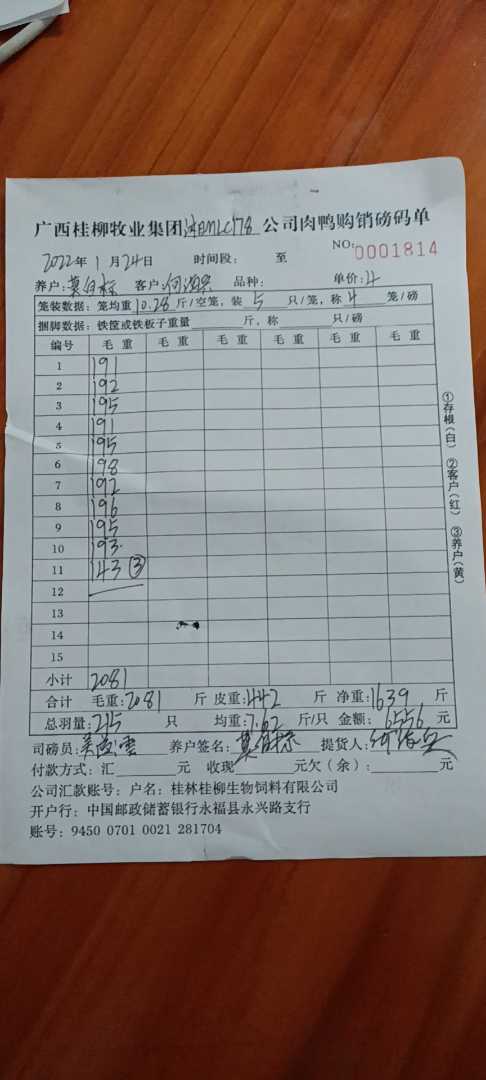 广西桂柳牧业集团 公司肉鸭购销磅码单
NO: 0001814
2022年1月24日 时间段: 至
养户: 客户: 品种: 单价: 4
笼装数据: 笼均重10.28斤/空笼, 装5只/笼, 称4笼/磅
捆脚数据: 铁筐或铁板子重量 斤, 称 只/磅
编号 毛重 毛重 毛重 毛重 毛重 毛重
1 191
2 192
3 195
4 191
5 195
6 198
7 192
8 196
9 195
10 193
11 143 ③
12
13
14
15
小计 2081
合计 毛重: 2081 斤 皮重: 442 斤 净重: 1639 斤
总羽量: 215 只 均重: 7.62 斤/只 金额: 6556 元
司磅员: 养户签名: 提货人:
付款方式: 汇 元 收现 元欠(余): 元
公司汇款账号: 户名: 桂林桂柳生物饲料有限公司
开户行: 中国邮政储蓄银行永福县永兴路支行
账号: 9450 0701 0021 281704
①存根(白) ②客户(红) ③养户(黄)